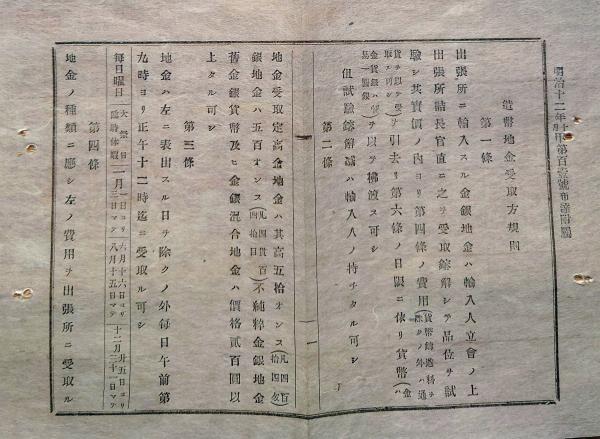 造幣地金受取方規則
第一條
出張所ニ輸入スル金銀地金ハ輸入人立會ノ上
出張所詰長官直ニ之ヲ受取鎔解シテ品位ヲ試
驗シ其實價ノ內ヨリ第四條ノ費用
ヲ引去リ第六條ノ日限ニ依リ貨幣
ヲ以テ拂渡ス可シ
但試驗鎔解減ハ輸入人ノ持チタル可シ
第二條
地金受取定高金地金ハ其高五拾オンス
銀地金ハ五百オンス 不純粹金銀地金
舊金銀貨幣及ヒ金銀混合地金ハ價格貳百圓以
上タル可シ
第三條
地金ハ左ニ表出スル日ヲ除クノ外每日午前第
九時ヨリ正午十二時迄ニ受取ル可シ
每日曜日 大祭日 一月一日ヨリ 六月十六日ヨリ 八月十五日マテ 十二月廿五日ヨリ
第四條
地金ノ種類ニ應シ左ノ費用ヲ出張所ニ受取ル